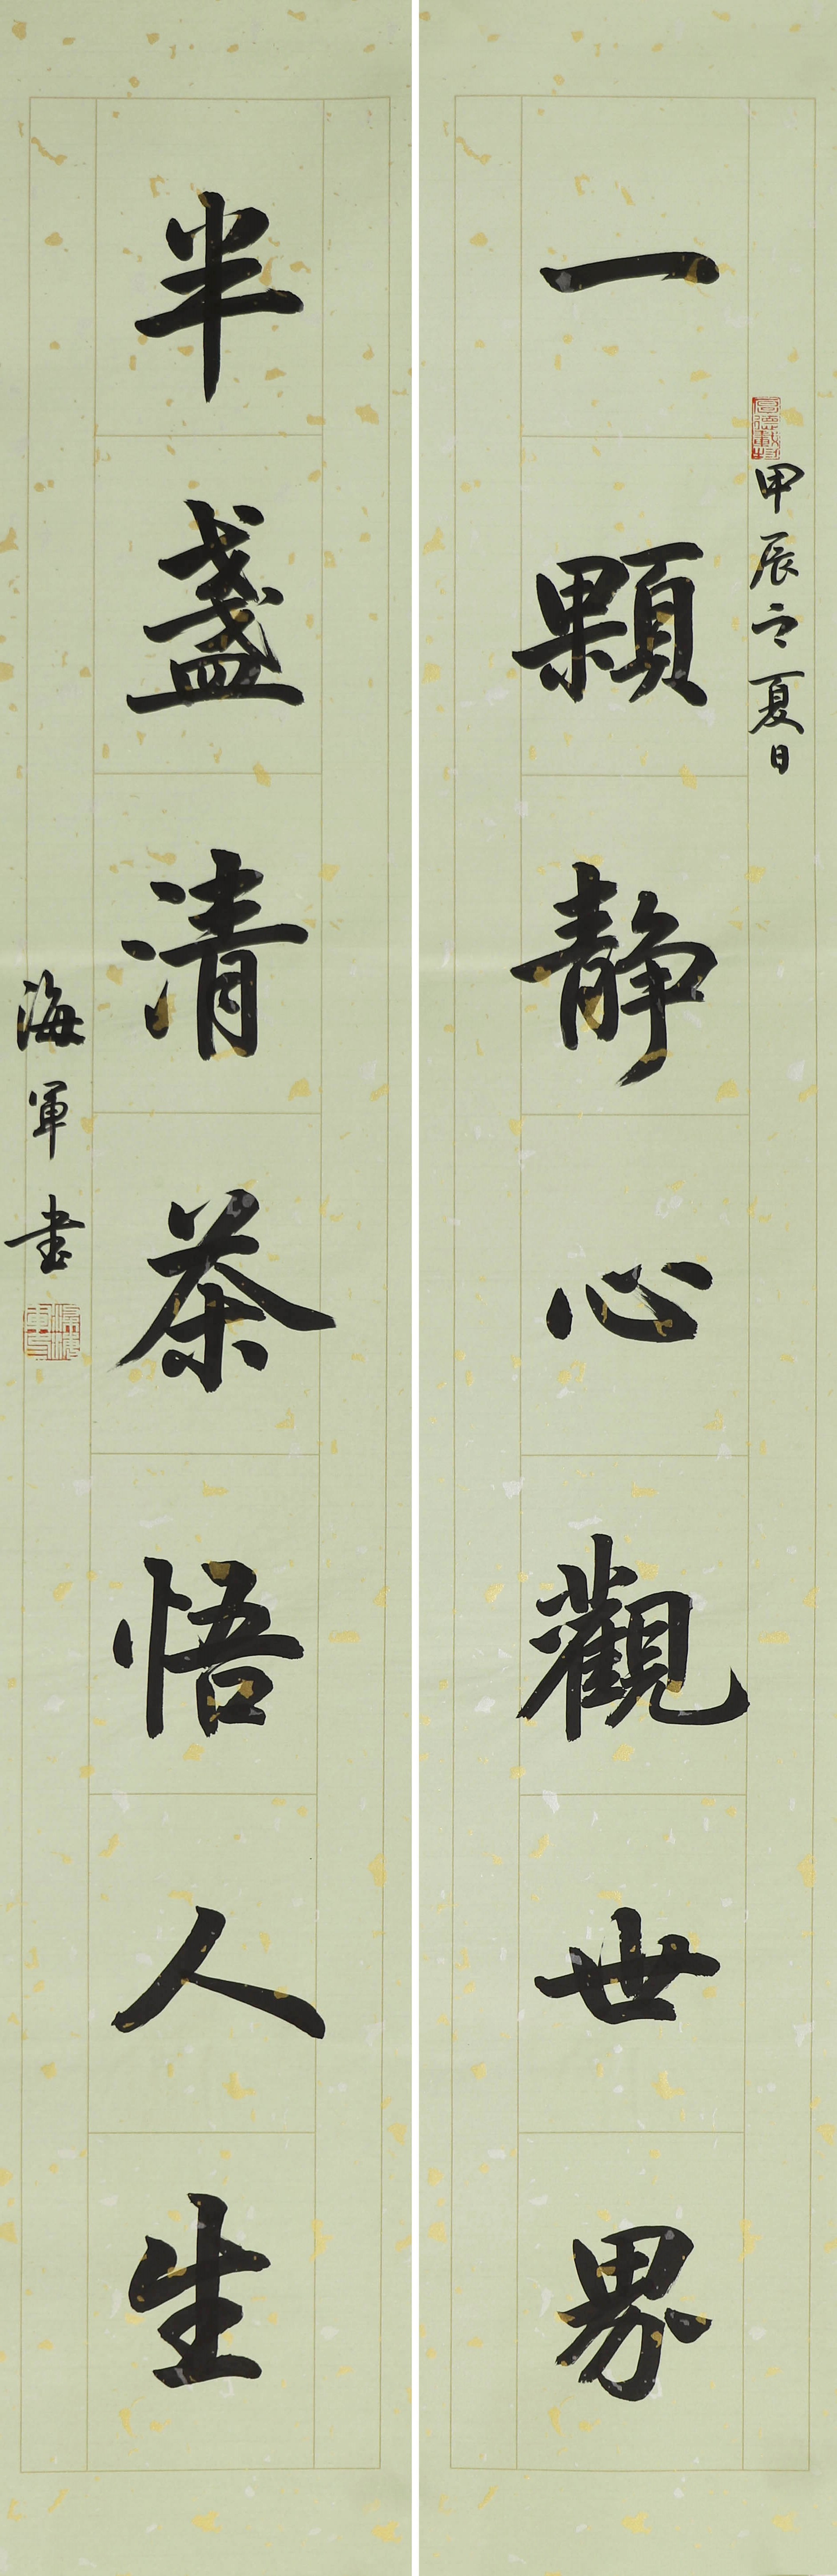 厚德載物
甲辰之夏日
一顆静心觀世界
半盞清茶悟人生
海軍書